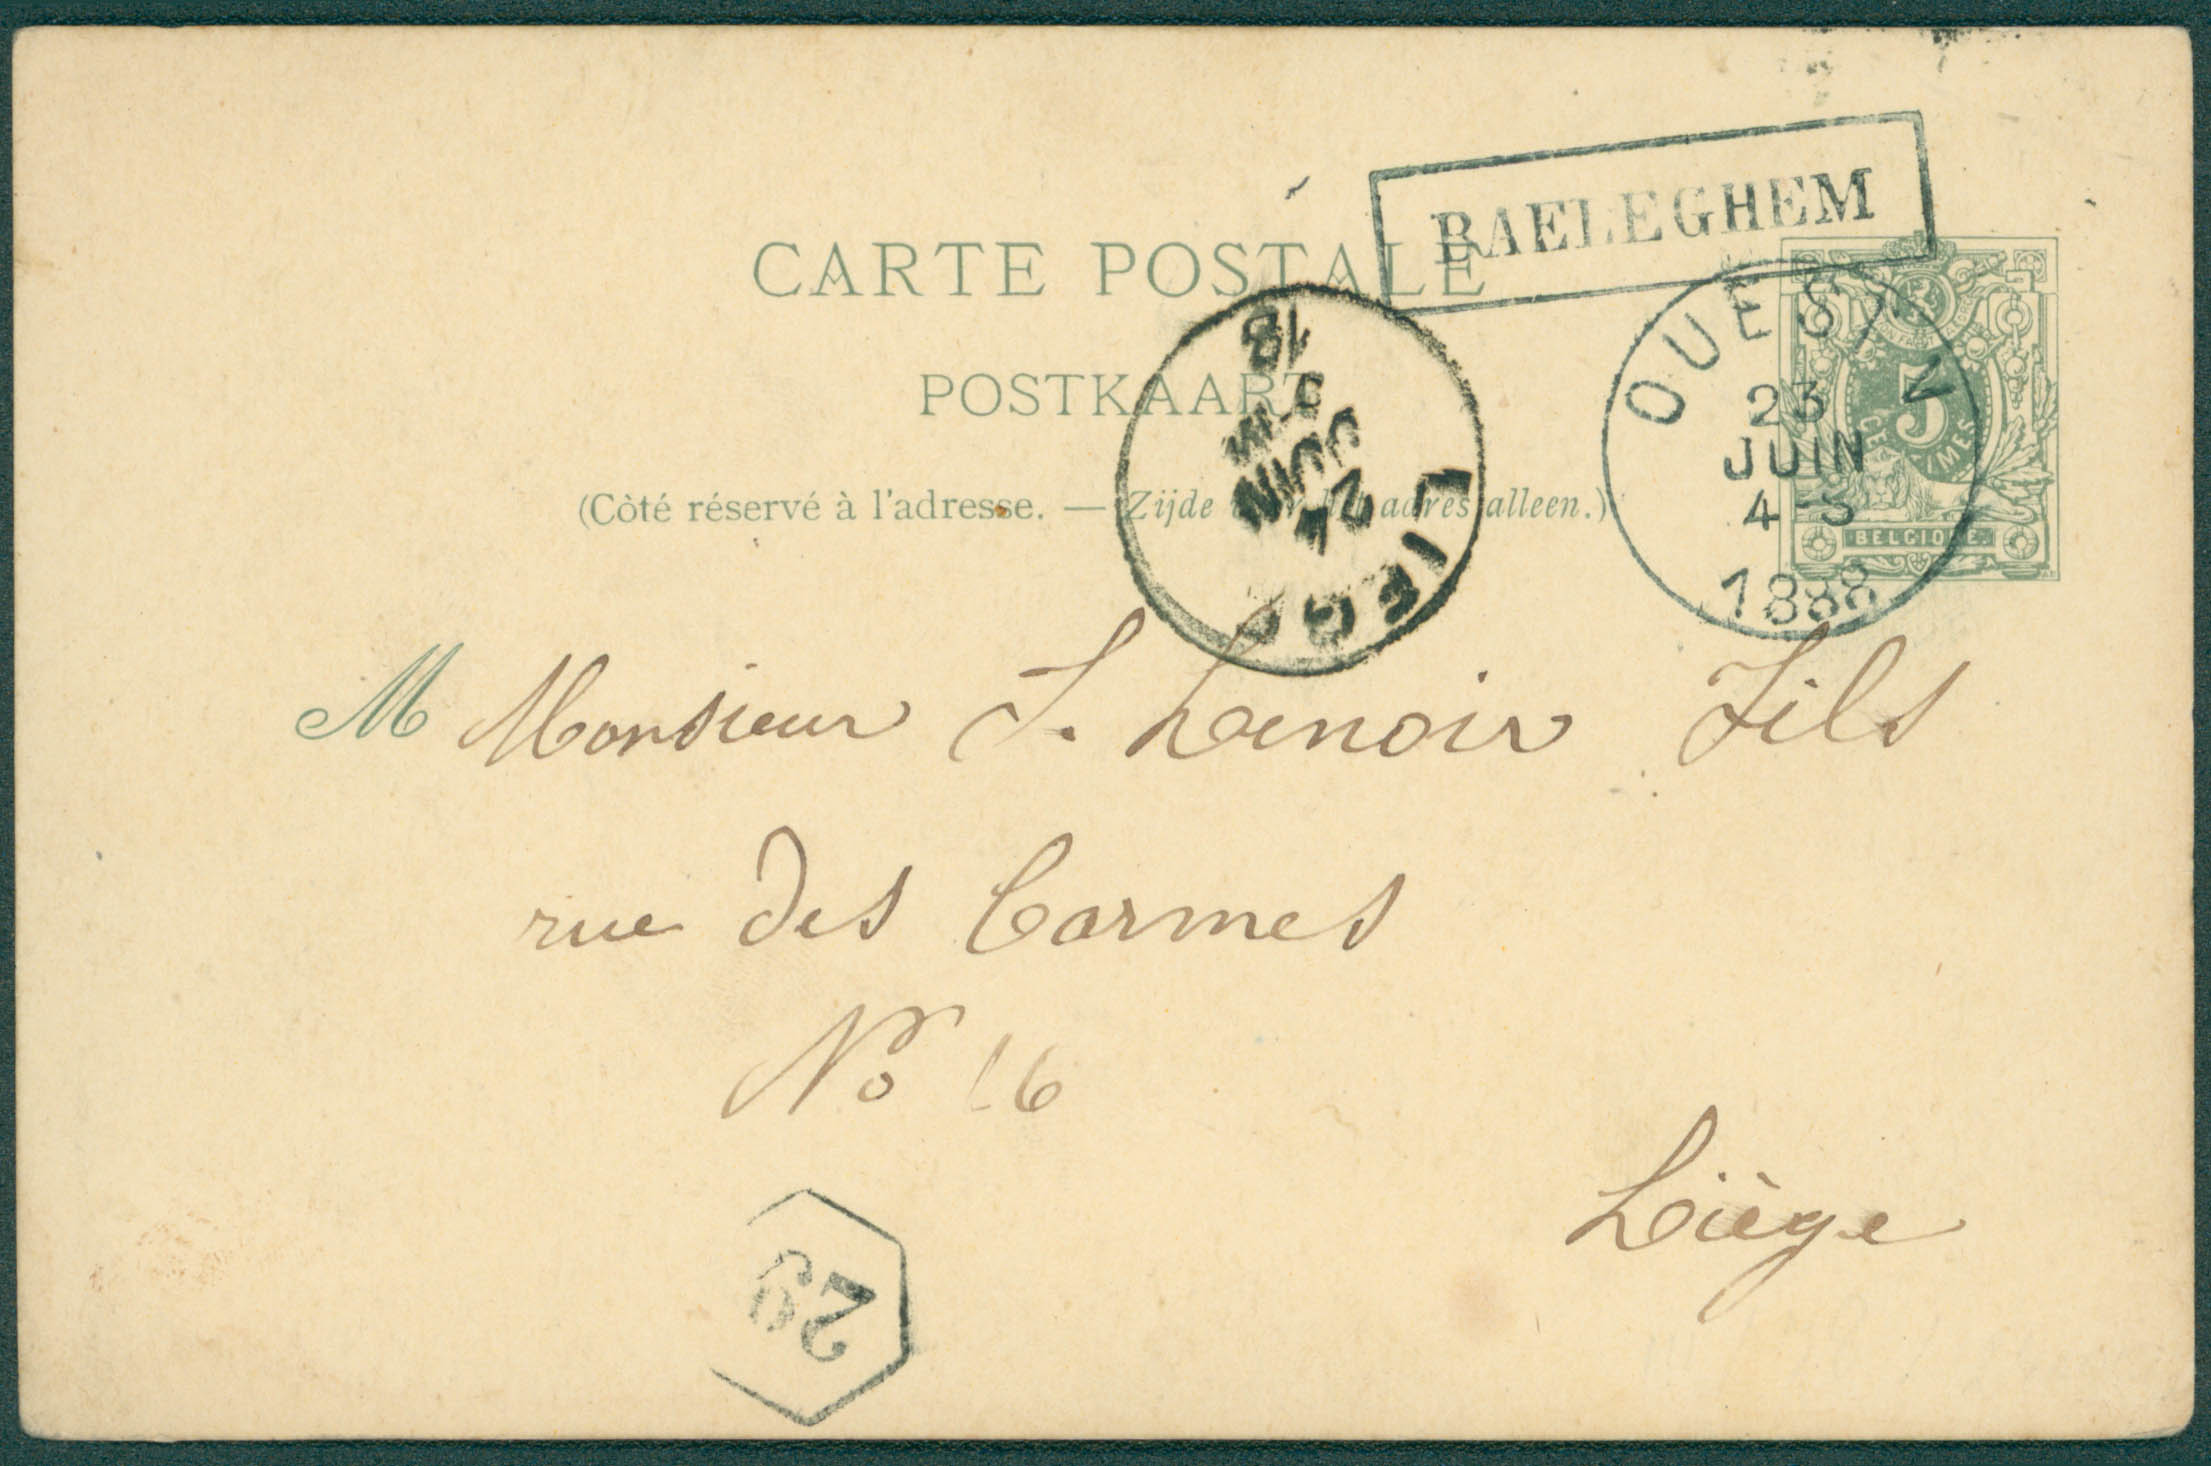 BAELEGHEM
CARTE POSTALE
POSTKAART
(Côté réservé à l'adresse. — Zijde adres alleen.)
23
JUIN
4-5
1888
5
CE IMES
BELGIQUE.
LIEGE
24
JUIN
18
M Monsieur J. Lenoir Fils
rue des Carmes
No 16
Liège
29